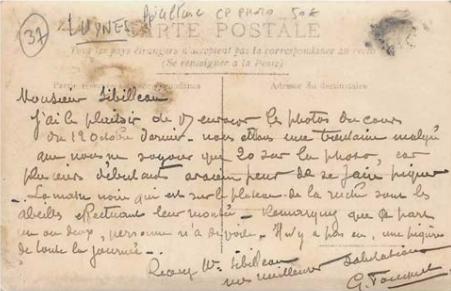 37 LUYNES Apiculture CP PHOTO 50€
CARTE POSTALE
Tous les pays étrangers n'acceptent pas la correspondance au recto
(Se renseigner à la Poste)
Partie réservée à la correspondance
Adresse du destinataire
Monsieur Sibilleau
J'ai le plaisir de v/ envoyer les photos du cours
du 12 Octobre dernier - nous étions une trentaine malgré
que nous ne soyons que 20 sur la photo, car
plusieurs débutants avaient peur de se faire piquer
- La masse noire qui est sur le plateau de la ruche sont les
abeilles effectuant leur montée - Remarquez que à part
un ou deux, personne n'a de voile - Il n'y a pas eu une piqûre
de toute la journée -
Recevez Mr. Sibilleau
mes meilleures salutations
G.